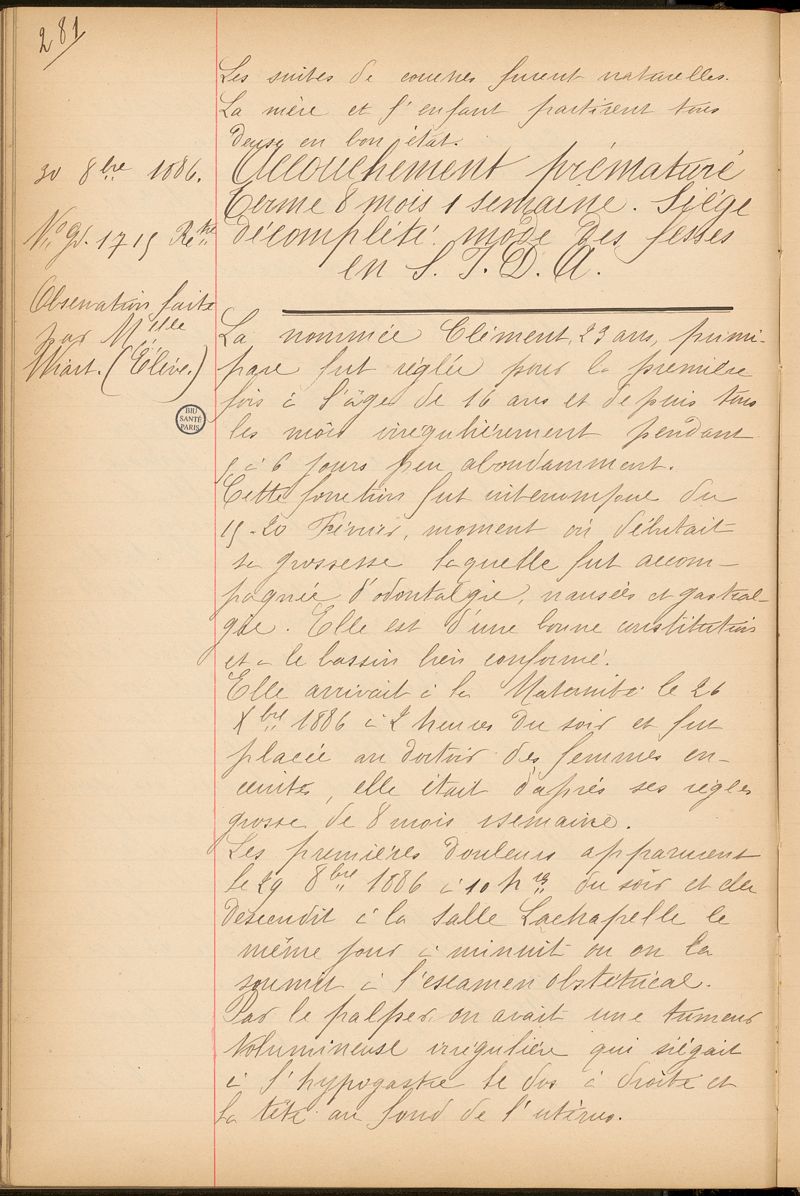 281
Les suites de couches furent naturelles.
La mère et l'enfant partirent tous
deux en bon état.
30 8bre 1886.
Accouchement prématuré
Terme 8 mois 1 semaine. Siège
No gd. 1715 Retre
décomplété mode des fesses
en S. I. D. A.
Observation faite
par Melle
Miart. (Élève.)
BIU
SANTÉ
PARIS
La nommée Clément, 23 ans, primi-
pare fut réglée pour la première
fois à l'âge de 16 ans et depuis tous
les mois irrégulièrement pendant
5 à 6 jours peu abondamment.
Cette fonction fut interrompue du
15-20 Février, moment où débutait
sa grossesse laquelle fut accom-
pagnée d'odontalgie, nausées et gastral-
gie. Elle est d'une bonne constitution
et a le bassin bien conformé.
Elle arrivait à la Maternité le 26
Xbre 1886 à 2 heures du soir et fut
placée au dortoir des femmes en-
ceintes, elle était d'après ses règles
grosse de 8 mois 1 semaine.
Les premières douleurs apparurent
le 29 8bre 1886 à 10 hres du soir et elle
descendit à la salle Lachapelle le
même jour à minuit ou on la
soumit à l'examen obstétrical.
Par le palper on avait une tumeur
volumineuse irrégulière qui siégait
à l'hypogastre le dos à droite et
la tête au fond de l'utérus.